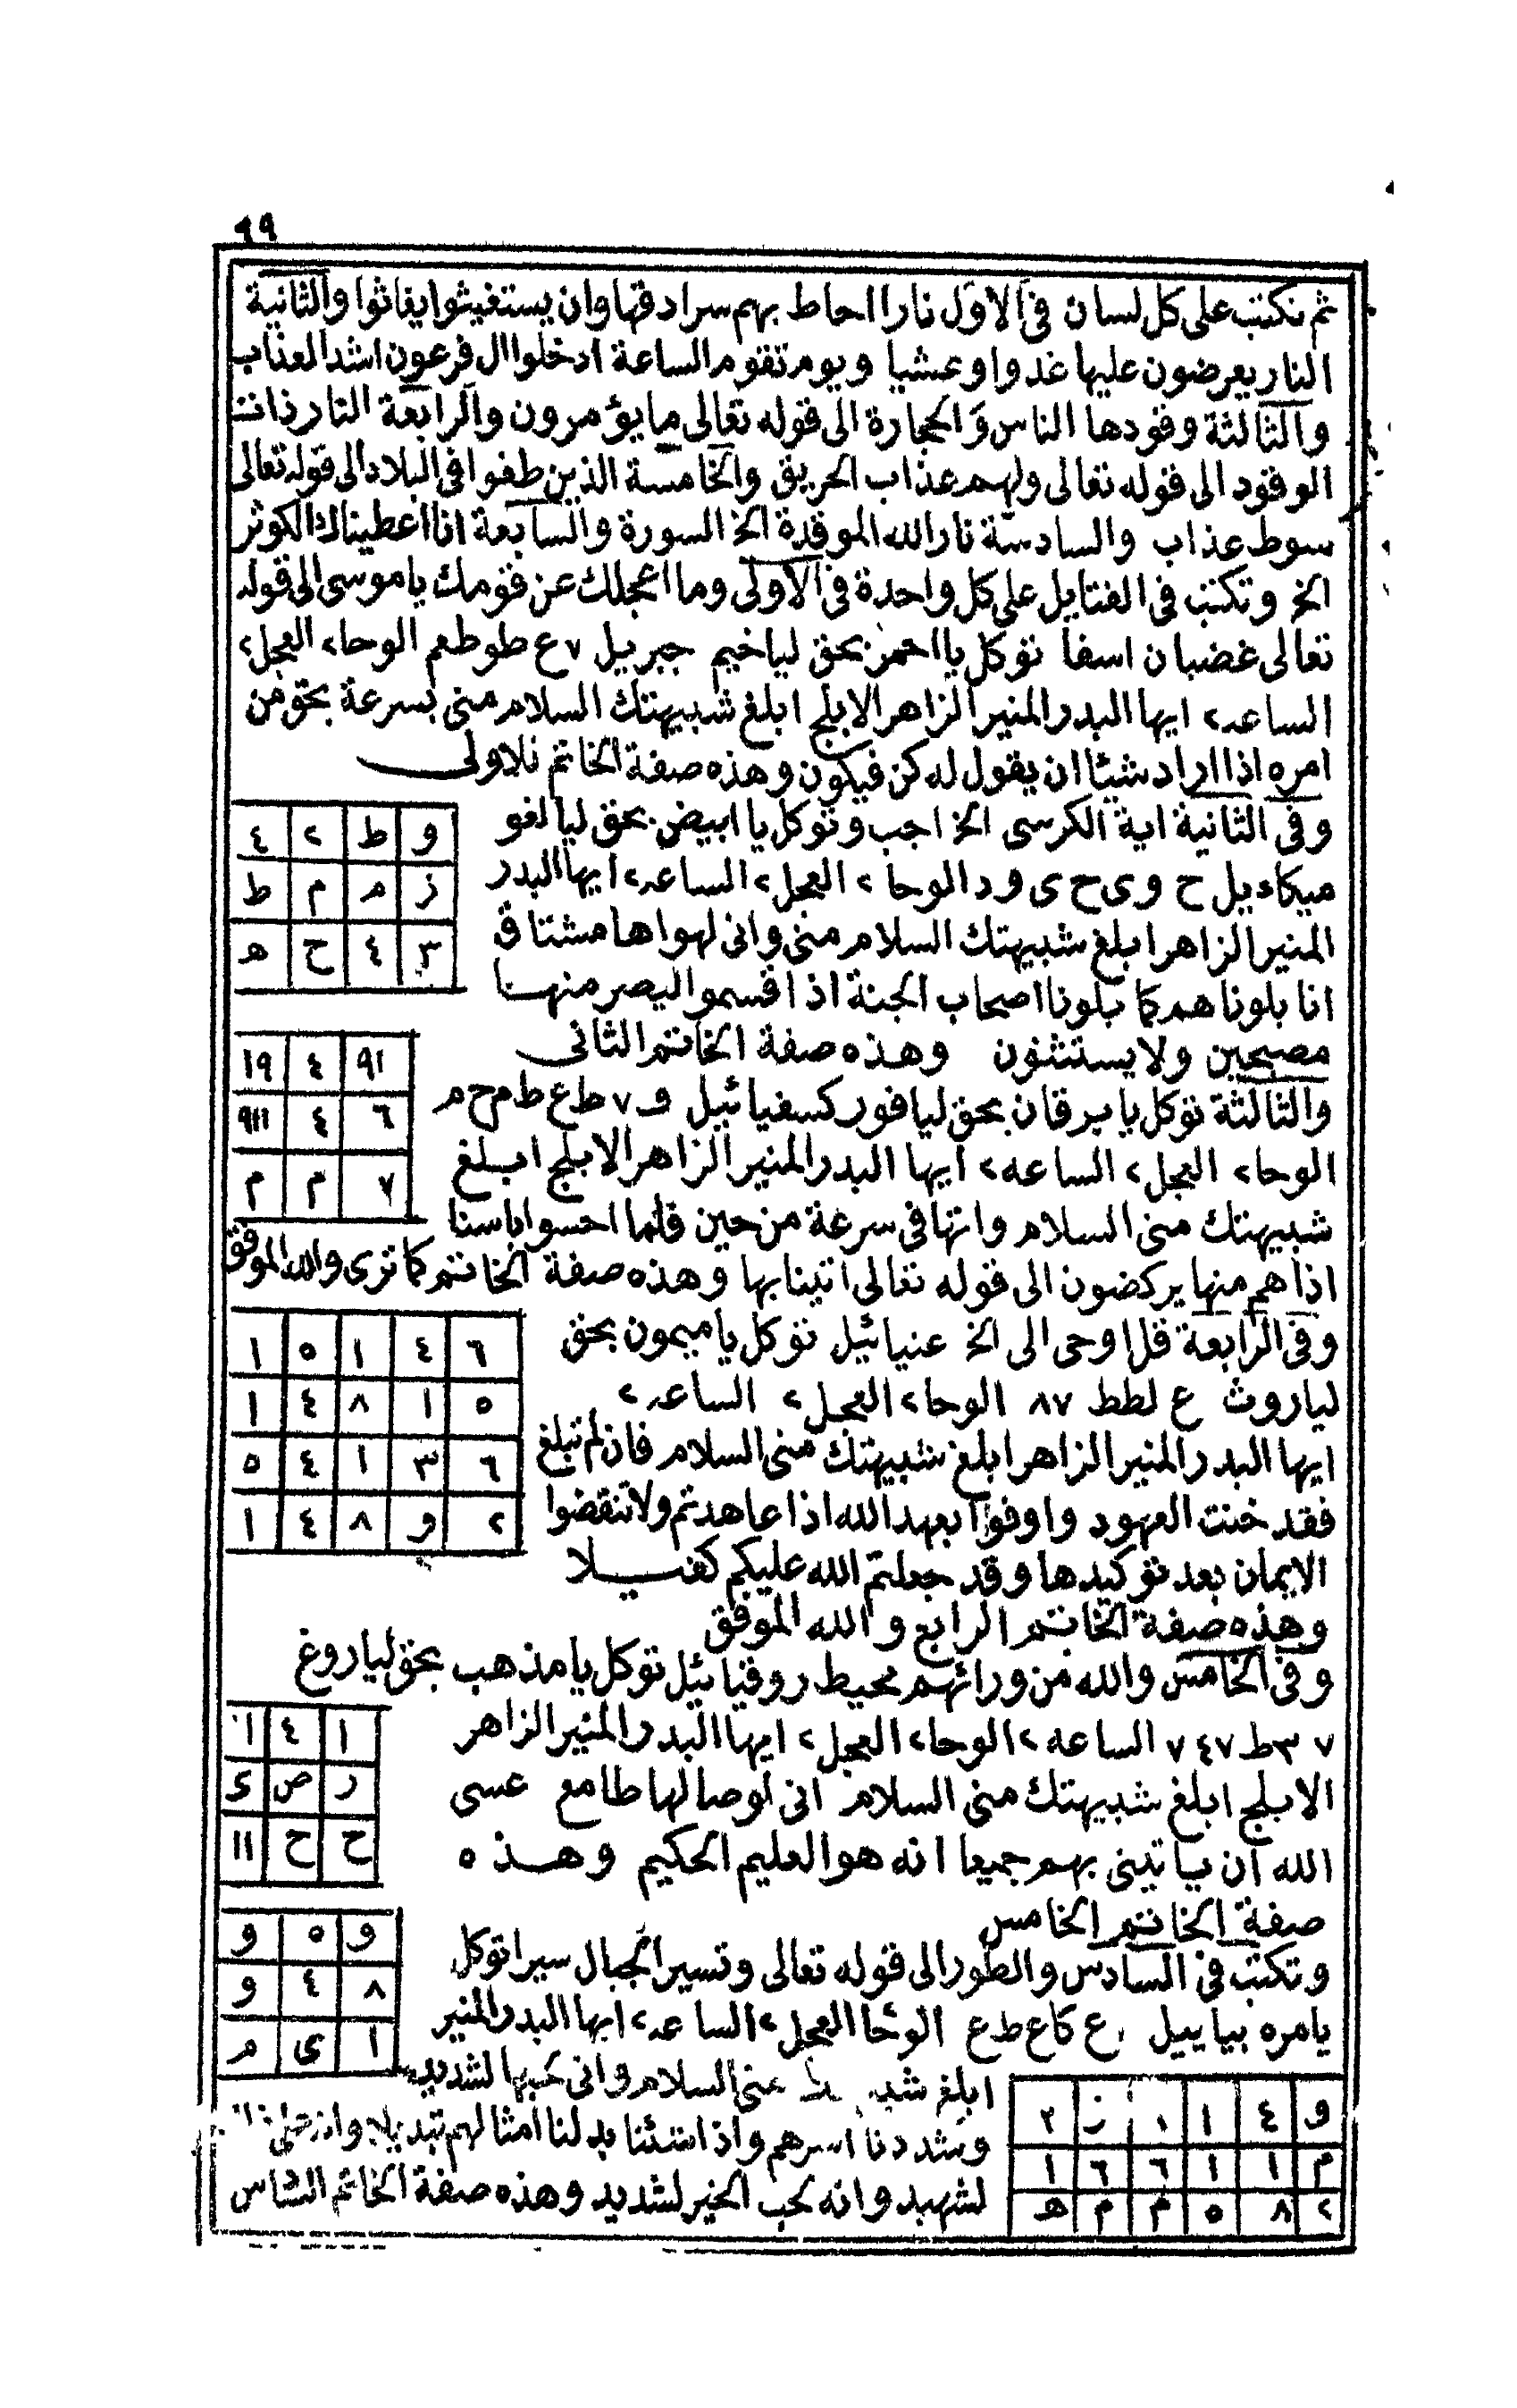 ٩٩
ثم تكتب على كل لسان فى الاول نارا احاط بهم سرادقها وان يستغيثوا يغاثوا والثانية
النار يعرضون عليها غدوا وعشيا ويوم تقوم الساعة ادخلوا ال فرعون اشد العذاب
والثالثة وقودها الناس والحجارة الى قوله تعالى ما يؤمرون والرابعة النار ذات
الوقود الى قوله تعالى ولهم عذاب الحريق والخامسة الذين طغوا فى البلاد الى قوله تعالى
سوط عذاب والسادسة نار الله الموقدة الخ السورة والسابعة انا اعطيناك الكوثر
الخ وتكتب فى الفتايل على كل واحدة فى الاولى وما اعجلك عن قومك يا موسى الى قوله
تعالى غضبان اسفا توكل يا احمر بحق لياخيم جبريل ٧ ع طوطعم الوحا٢ العجل٢
الساعه٢ ايها البدر المنير الزاهر الابلج ابلغ شبيهتك السلام منى بسرعة بحق من
امره اذا اراد شيئا ان يقول له كن فيكون وهذه صفة الخاتم للاولى
وفى الثانية اية الكرسى الخ اجب وتوكل يا ابيض بحق ليالغو
ميكاءيل ح وى ح ى ود الوحا٢ العجل٢ الساعه٢ ايها البدر
المنير الزاهر ابلغ شبيهتك السلام منى وانى لهواها مشتاق
انا بلوناهم كما بلونا اصحاب الجنة اذ اقسموا ليصرمنها
مصبحين ولا يستثنون وهذه صفة الخاتم الثانى
و ط ٢ ٤
ز م م ط
٣ ٤ ح ه
والثالثة توكل يا برقان بحق ليافور كسفيائيل و ٧ ط ع ط م ح م
الوحا٢ العجل٢ الساعه٢ ايها البدر المنير الزاهر الابلج ابلغ
شبيهتك منى السلام واتها فى سرعة من حين فلما احسوا باسنا
اذا هم منها يركضون الى قوله تعالى اتينا بها وهذه صفة الخاتم كما ترى والله الموفق
٩١ ٤ ١٩
٦ ٤ ٩١١
٧ م م
وفى الرابعة قل اوحى الى الخ عنيائيل توكل يا ميمون بحق
لياروث ع لطط ٨٧ الوحا٢ العجل٢ الساعه٢
ايها البدر المنير الزاهر ابلغ شبيهتك منى السلام فان لم تبلغ
فقد خنت العهود واوفوا بعهد الله اذا عاهدتم ولا تنقضوا
الايمان بعد توكيدها وقد جعلتم الله عليكم كفيلا
وهذه صفة الخاتم الرابع والله الموفق
٦ ٤ ١ ٥ ١
٥ ١ ٨ ٤ ١
٦ ٣ ١ ٤ ٥
٢ و ٨ ٤ ١
وفى الخامس والله من ورائهم محيط روقيائيل توكل يا مذهب بحق لياروغ
٧ ٣ ط ٧٤٧ الساعه٢ الوحا٢ العجل٢ ايها البدر المنير الزاهر
الابلج ابلغ شبيهتك منى السلام انى لوصالها طامع عسى
الله ان ياتينى بهم جميعا انه هو العليم الحكيم وهذه
صفة الخاتم الخامس
١ ٤ ١
ر ص ى
ح ح ١١
وتكتب فى السادس والطور الى قوله تعالى وتسير الجبال سيرا توكل
يا مره بياييل ع كاع ط ع الوحا العجل٢ الساعه٢ ايها البدر المنير
ابلغ منى السلام وانى لحبها لشديد
وشددنا اسرهم واذا شئنا بدلنا امثالهم تبديلا وانه على
لشهيد وانه لحب الخير لشديد وهذه صفة الخاتم السادس
و ٥ و
٨ ٤ و
١ ى م
و ٤ ١ ١ ز ٢
م ١ ١ ٦ ٦ ١
٢ ٨ ٥ م م ه